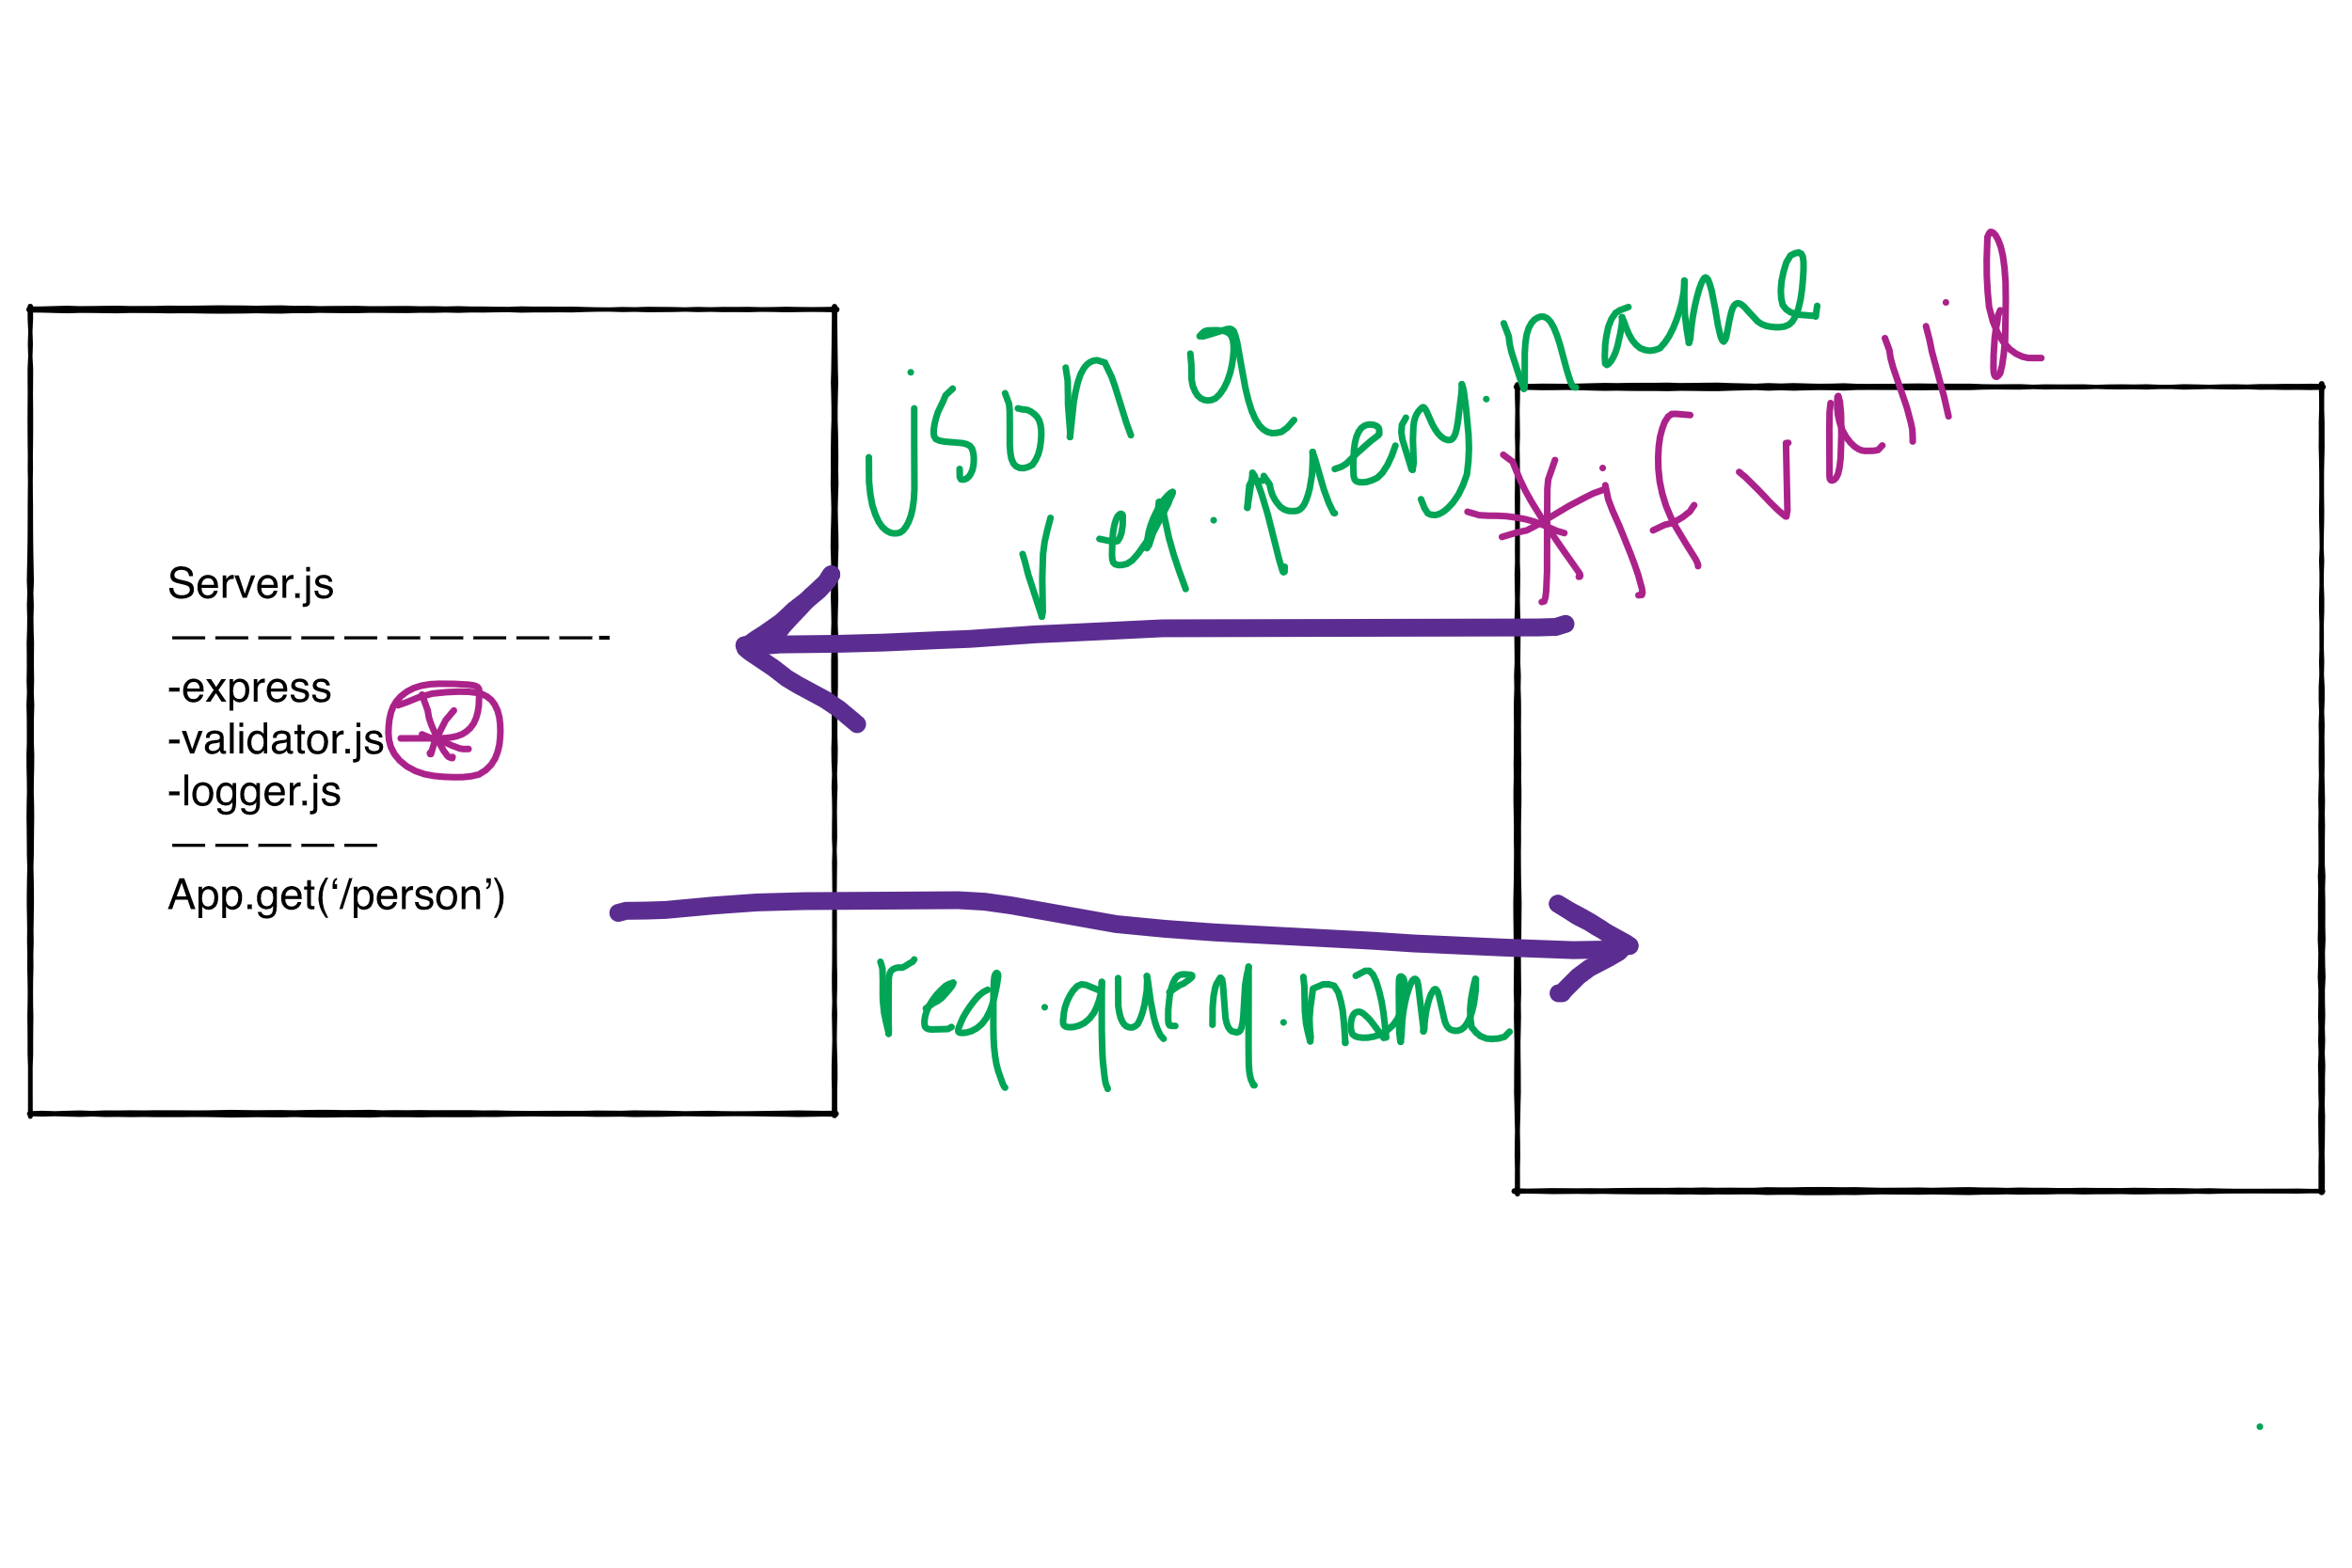 Server.js
— — — — — — — — — — -
-express
-validator.js *
-logger.js
— — — — —
App.get(‘/person’)
json of
req.query.name
*if valid
req.query.name